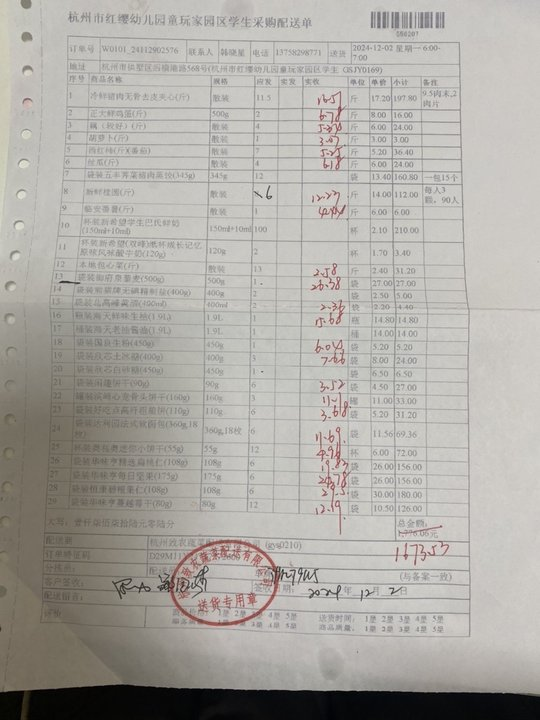 杭州市红缨幼儿园童玩家园区学生采购配送单
506207
订单号 W0101_24112902576 联系人 韩晓星 电话 13758298771 送货 2024-12-02 星期一 6:00-7:00
地址 杭州市拱墅区 568号(杭州市红缨幼儿园童玩家园区学生 GSJY0169)
序号 商品名称 规格 应发 实发 实收 单位 单价 小计 备注
1 冷鲜猪肉无骨去皮夹心(斤) 散装 11.5 斤 17.20 197.80 9.5肉末,2肉片
2 正大鲜鸡蛋(斤) 500g 2 6.78 斤 8.00 16.00
3 藕(较好)(斤) 散装 4 斤 6.00 24.00
4 胡萝卜(斤) 散装 1 斤 3.00 3.00
5 西红柿(斤)(番茄) 散装 7 斤 5.20 36.40
6 丝瓜(斤) 散装 4 6.18 斤 6.00 24.00
7 袋装五丰荠菜猪肉蒸饺(345g) 345g 12 袋 13.40 160.80 一包15个
8 新鲜桂圆(斤) 散装 ×6 12.23 斤 14.00 112.00 每人3颗,90人
9 临安番薯(斤) 散装 1 斤 6.00 6.00
10 杯装新希望学生巴氏鲜奶(150ml+10ml) 150ml+10ml 100 杯 2.10 210.00
11 杯装新希望(双峰)纸杯成长记忆原味风味酸牛奶(120g) 120g 2 杯 1.70 3.40
12 本地包心菜(斤) 散装 13 2.58 斤 2.40 31.20
13 袋装御府泉藜麦(500g) 500g 1 26.38 袋 27.00 27.00
14 袋装 牌无碘精制盐(400g) 400g 2 袋 2.50 5.00
15 袋装北高峰黄酒(400ml) 400ml 2 2.36 袋 2.20 4.40
16 瓶装海天鲜味生抽(1.9L) 1.9L 1 15.68 瓶 14.80 14.80
17 桶装海天老抽酱油(1.9L) 1.9L 1 桶 14.00 14.00
18 袋装国良生粉(450g) 450g 1 袋 5.20 5.20
19 袋装欣芯土冰糖(400g) 400g 3 7.66 袋 8.00 24.00
20 袋装欣芯白砂糖(450g) 450g 1 袋 6.50 6.50
21 袋装闲趣饼干(90g) 90g 6 3.52 袋 4.50 27.00
22 罐装滨崎心宠骨头饼干(160g) 160g 3 罐 11.00 33.00
23 袋装好吃点高纤粗粮饼(110g) 110g 6 3.68 袋 5.20 31.20
24 袋装达利园法式软面包(360g,18枚) 360g,18枚 6 11.69 袋 11.56 69.36
25 杯装奥利奥迷你小饼干(55g) 55g 12 杯 6.00 72.00
26 袋装华味亨精选扁桃仁(108g) 108g 6 19.83 袋 26.00 156.00
27 袋装华味亨每日坚果(175g) 175g 6 24.78 袋 26.00 156.00
28 袋装恒康碧根果仁(108g) 108g 6 袋 30.00 180.00
29 袋装华味亨蔓越莓干(80g) 80g 12 12.19 袋 10.50 126.00
大写：壹仟柒佰柒拾陆元零陆分 总金额:
1,776.06元
1673.53
配送商 杭州致农蔬菜配送有限公司 (gys0210)
订单验证码
分拣员 (与备案一致)
客户签收 签收日期 2024年12月2日
配送留言
评价 1星 2星 3星 4星 5星 送货时间: 1星 2星 3星 4星 5星
服务质量: 1星 2星 3星 4星 5星 商品质量: 1星 2星 3星 4星 5星
送货专用章